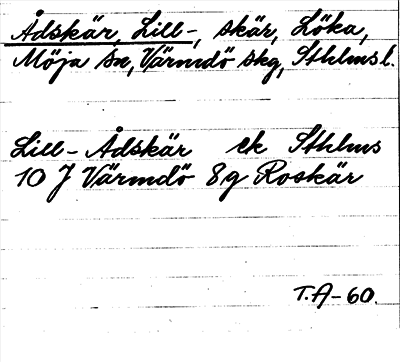 Ådskär, Lill-, skär, Löka,
Möja sn, Värmdö skg, Sthlms l.
Lill-Ådskär ek Sthlms
10 J Värmdö 8g Roskär
T.A-60.